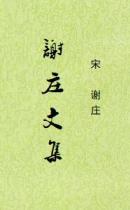 宋 谢庄
謝庄文集